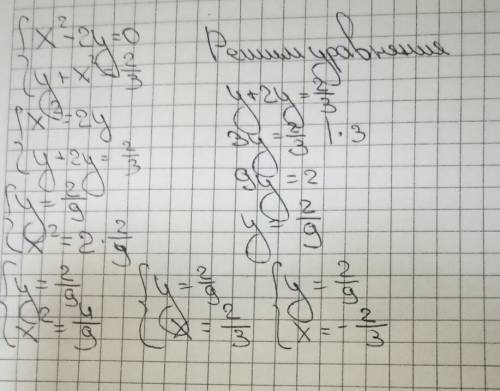 { x² - 2y = 0
{ y + x² = 2/3
{ x² = 2y
{ y + 2y = 2/3
{ y = 2/9
{ x² = 2 · 2/9
{ y = 2/9
{ x² = 4/9
{ y = 2/9
{ x = 2/3
{ y = 2/9
{ x = - 2/3
Решим уравнения
y + 2y = 2/3
3y = 2/3 | · 3
9y = 2
y = 2/9